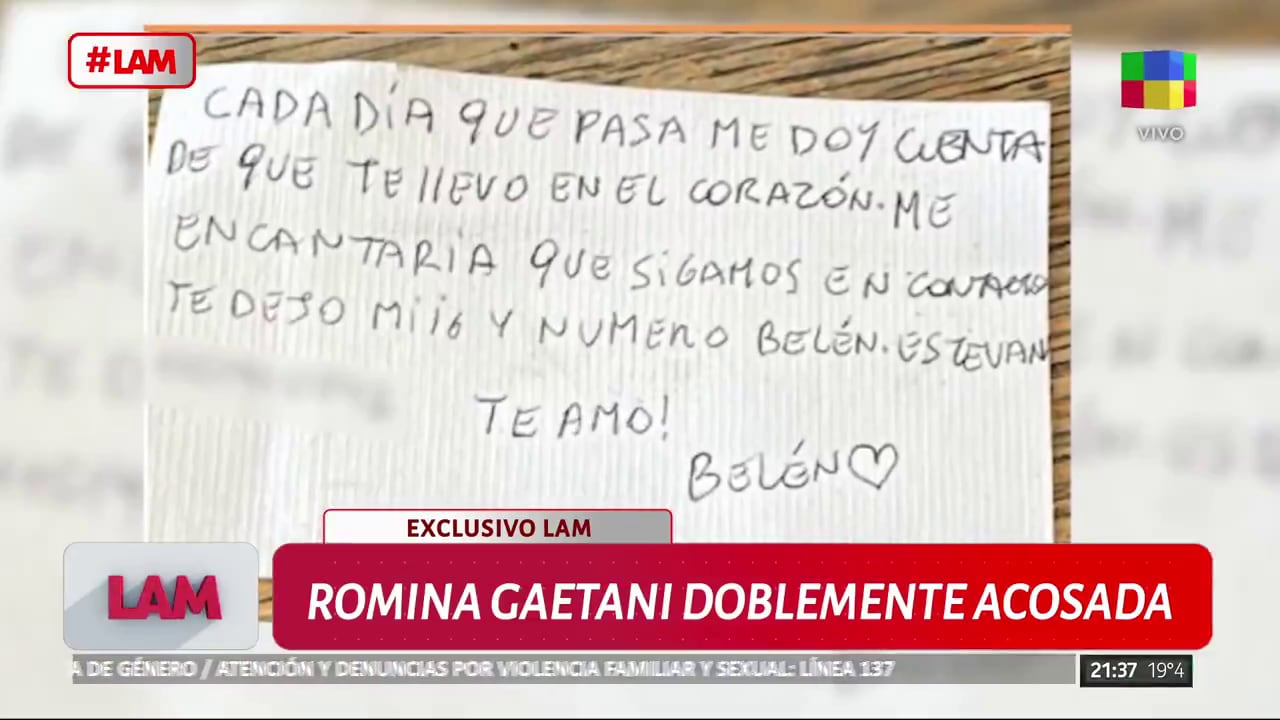 #LAM
VIVO
CADA DÍA QUE PASA ME DOY CUENTA
DE QUE TE LLEVO EN EL CORAZÓN. ME
ENCANTARÍA QUE SIGAMOS EN CONTACTO
TE DEJO MI IG Y NUMERO BELÉN.ESTEVAN
TE AMO!
BELÉN
EXCLUSIVO LAM
LAM
ROMINA GAETANI DOBLEMENTE ACOSADA
A DE GÉNERO / ATENCIÓN Y DENUNCIAS POR VIOLENCIA FAMILIAR Y SEXUAL: LÍNEA 137
21:37 19°4